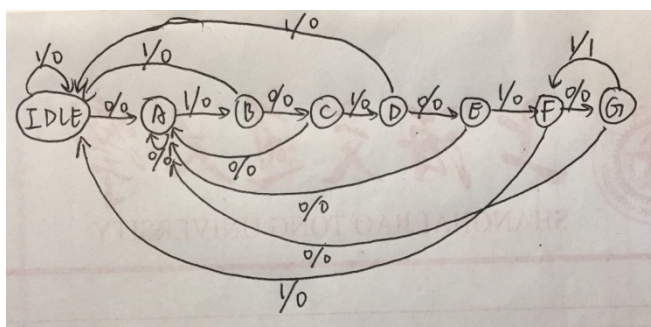 1/0
1/0 1/0 1/1
IDLE 0/0 A 1/0 B 0/0 C 1/0 D 0/0 E 1/0 F 0/0 G
0/0 0/0
0/0
SHANGHAI JIAO TONG UNIVERSITY
0/0
1/0